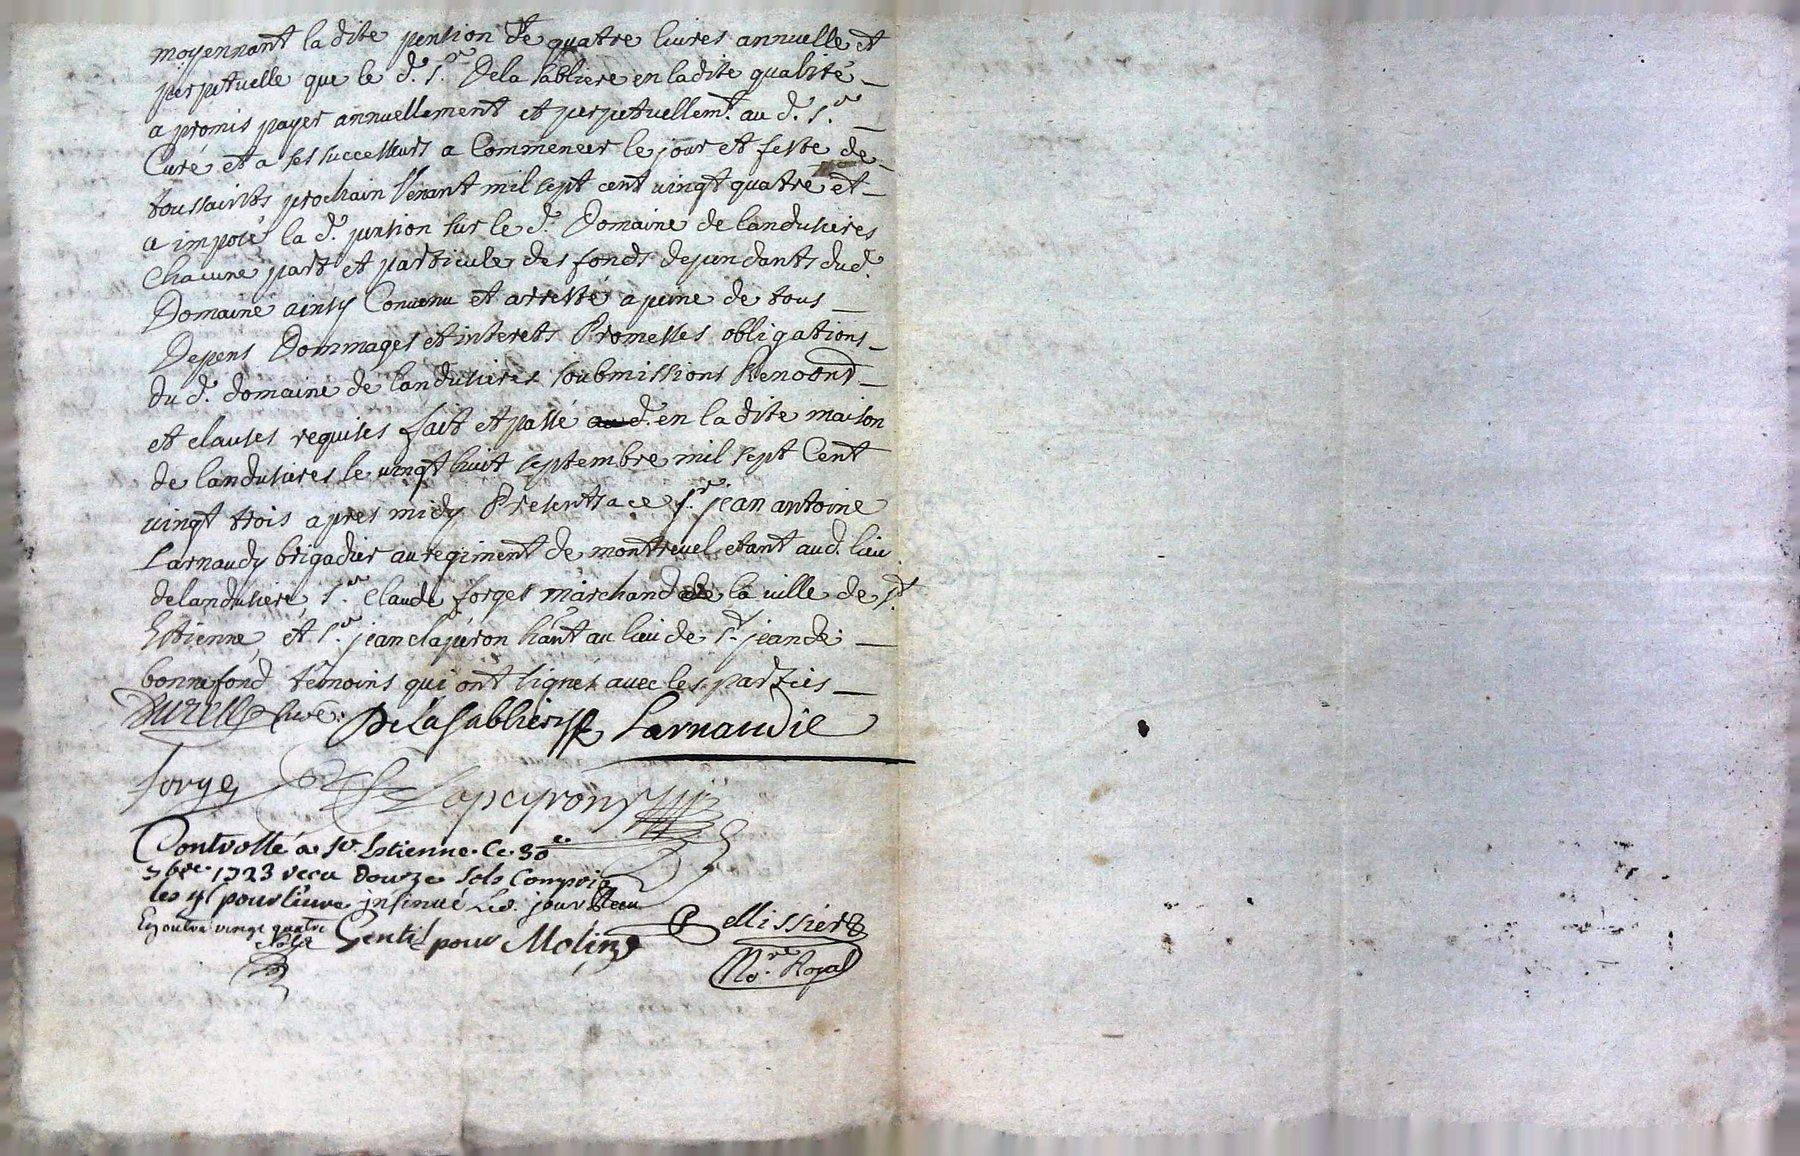 moyennant la dite pension de quatre livres annuelle et
perpetuelle que le d. Sr. Dela Sabliere en ladite qualité
a promis payer annuellement et perpetuellemt. au d. Sr.
Curé et a ses successeurs a Commencer le jour et feste de
toussaints prochain Venant mil sept cent vingt quatre et
a imposé la d. pension sur le d. Domaine de landusieres
Chacune part et particule des fonds dependants dud.
Domaine ainsy Convenu et arresté a peine de tous
Depens Dommages et interets Promesses obligations
du d. domaine de landusieres soubmissions Renoond
et clauses requises fait et passé en la dite maison
de landusieres le vingt huit septembre mil sept Cent
vingt trois apres midy Presents a ce Sr. jean antoine
Larnaudy brigadier au regiment de montrevel etant aud. lieu
de landusiere, Sr. Claude forges marchand de la ville de St
Estienne, et Sr. jean clapeiron hant au lieu de St jean de
bonnefond temoins qui ont signés avec les parties
Durelle Curé. De La Sabliere Larnaudie
forges Lapeyrony
Controllé a St. Estienne. Ce. 30e.
7bre. 1723 recu Douze sols Compris
les 4s pour livre insinué led. jour Recu
En outre vingt quatre Pellissier
sols Gentil pour Molin
No.re Royal